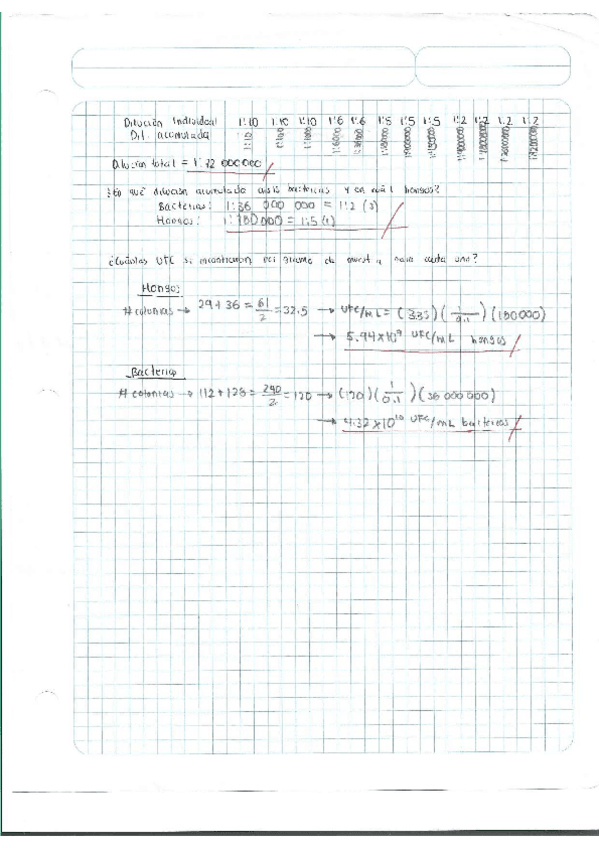 Dilución Individual 1:10 1:10 1:10 1:6 1:6 1:5 1:5 1:5 1:2 1:2 1:2 1:2
Dil. acumulada 1:10 1:100 1:1000 1:6000 1:36000
Dilución total = 1:72 000 000
¿En qué dilución acumulada aisló bacterias y en cuál hongos?
Bacterias: 1:36 000 000 = 1:2 (3)
Hongos: 1:180000 = 1:5 (1)
¿Cuántas UFC se encontraron por gramo de muestra para cada uno?
Hongos:
# colonias → 29 + 36 = 61/2 = 32.5 → UFC/mL = (3.35)(1/0.1)(180000)
→ 5.94x10⁷ UFC/mL hongos
Bacterias
# colonias → 112 + 128 = 240/2 = 120 → (120)(1/0.1)(36 000 000)
→ 4.32x10¹⁰ UFC/mL bacterias